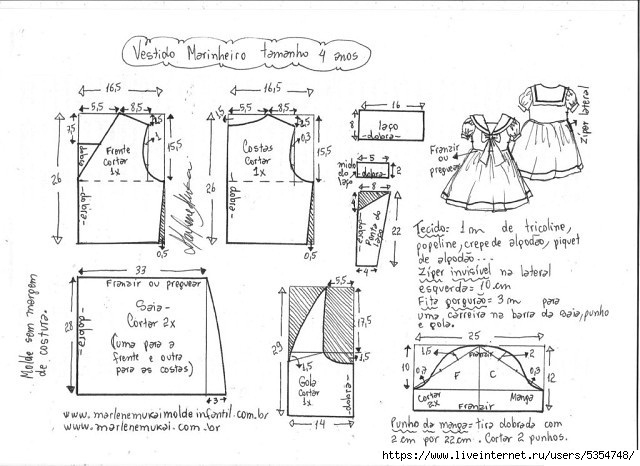 Vestido Marinheiro tamanho 4 anos
16,5
5,5
8,5
1,5
7,5
1
15,5
26
dobra
Frente
Cortar
1x
-dobra-
0,5
16,5
8,5
1,5
0,3
15,5
26
Costas
Cortar
1x
-dobra-
0,5
16
8
laço
-dobra-
5
miolo
do
laço
-dobra-
2
8
-dobra-
Ponta do
laço
22
4
Franzir
ou
preguear
zíper lateral
Tecido: 1m de tricoline,
popeline, crepe de algodão, piquet
de algodão...
Zíper invisível na lateral
esquerda = 10 cm
Fita gorgurão = 3m para
uma carreira na barra da saia, punho
e gola.
Molde sem margem
de costura.
33
Franzir ou preguear
28
-dobra-
Saia-
Cortar 2x
(uma para a
frente e outra
para as costas)
3
5,5
17,5
29
1,5
1,5
Gola
Cortar
1x
-dobra-
14
25
1,5
Franzir
2
10
0,7
F
C
0,3
12
Cortar
2x
Manga
Franzir
www.marlenemukaimoldeinfantil.com.br
www.marlenemukai.com.br
Punho da manga = tira dobrada com
2 cm por 22cm. Cortar 2 punhos.
https://www.liveinternet.ru/users/5354748/